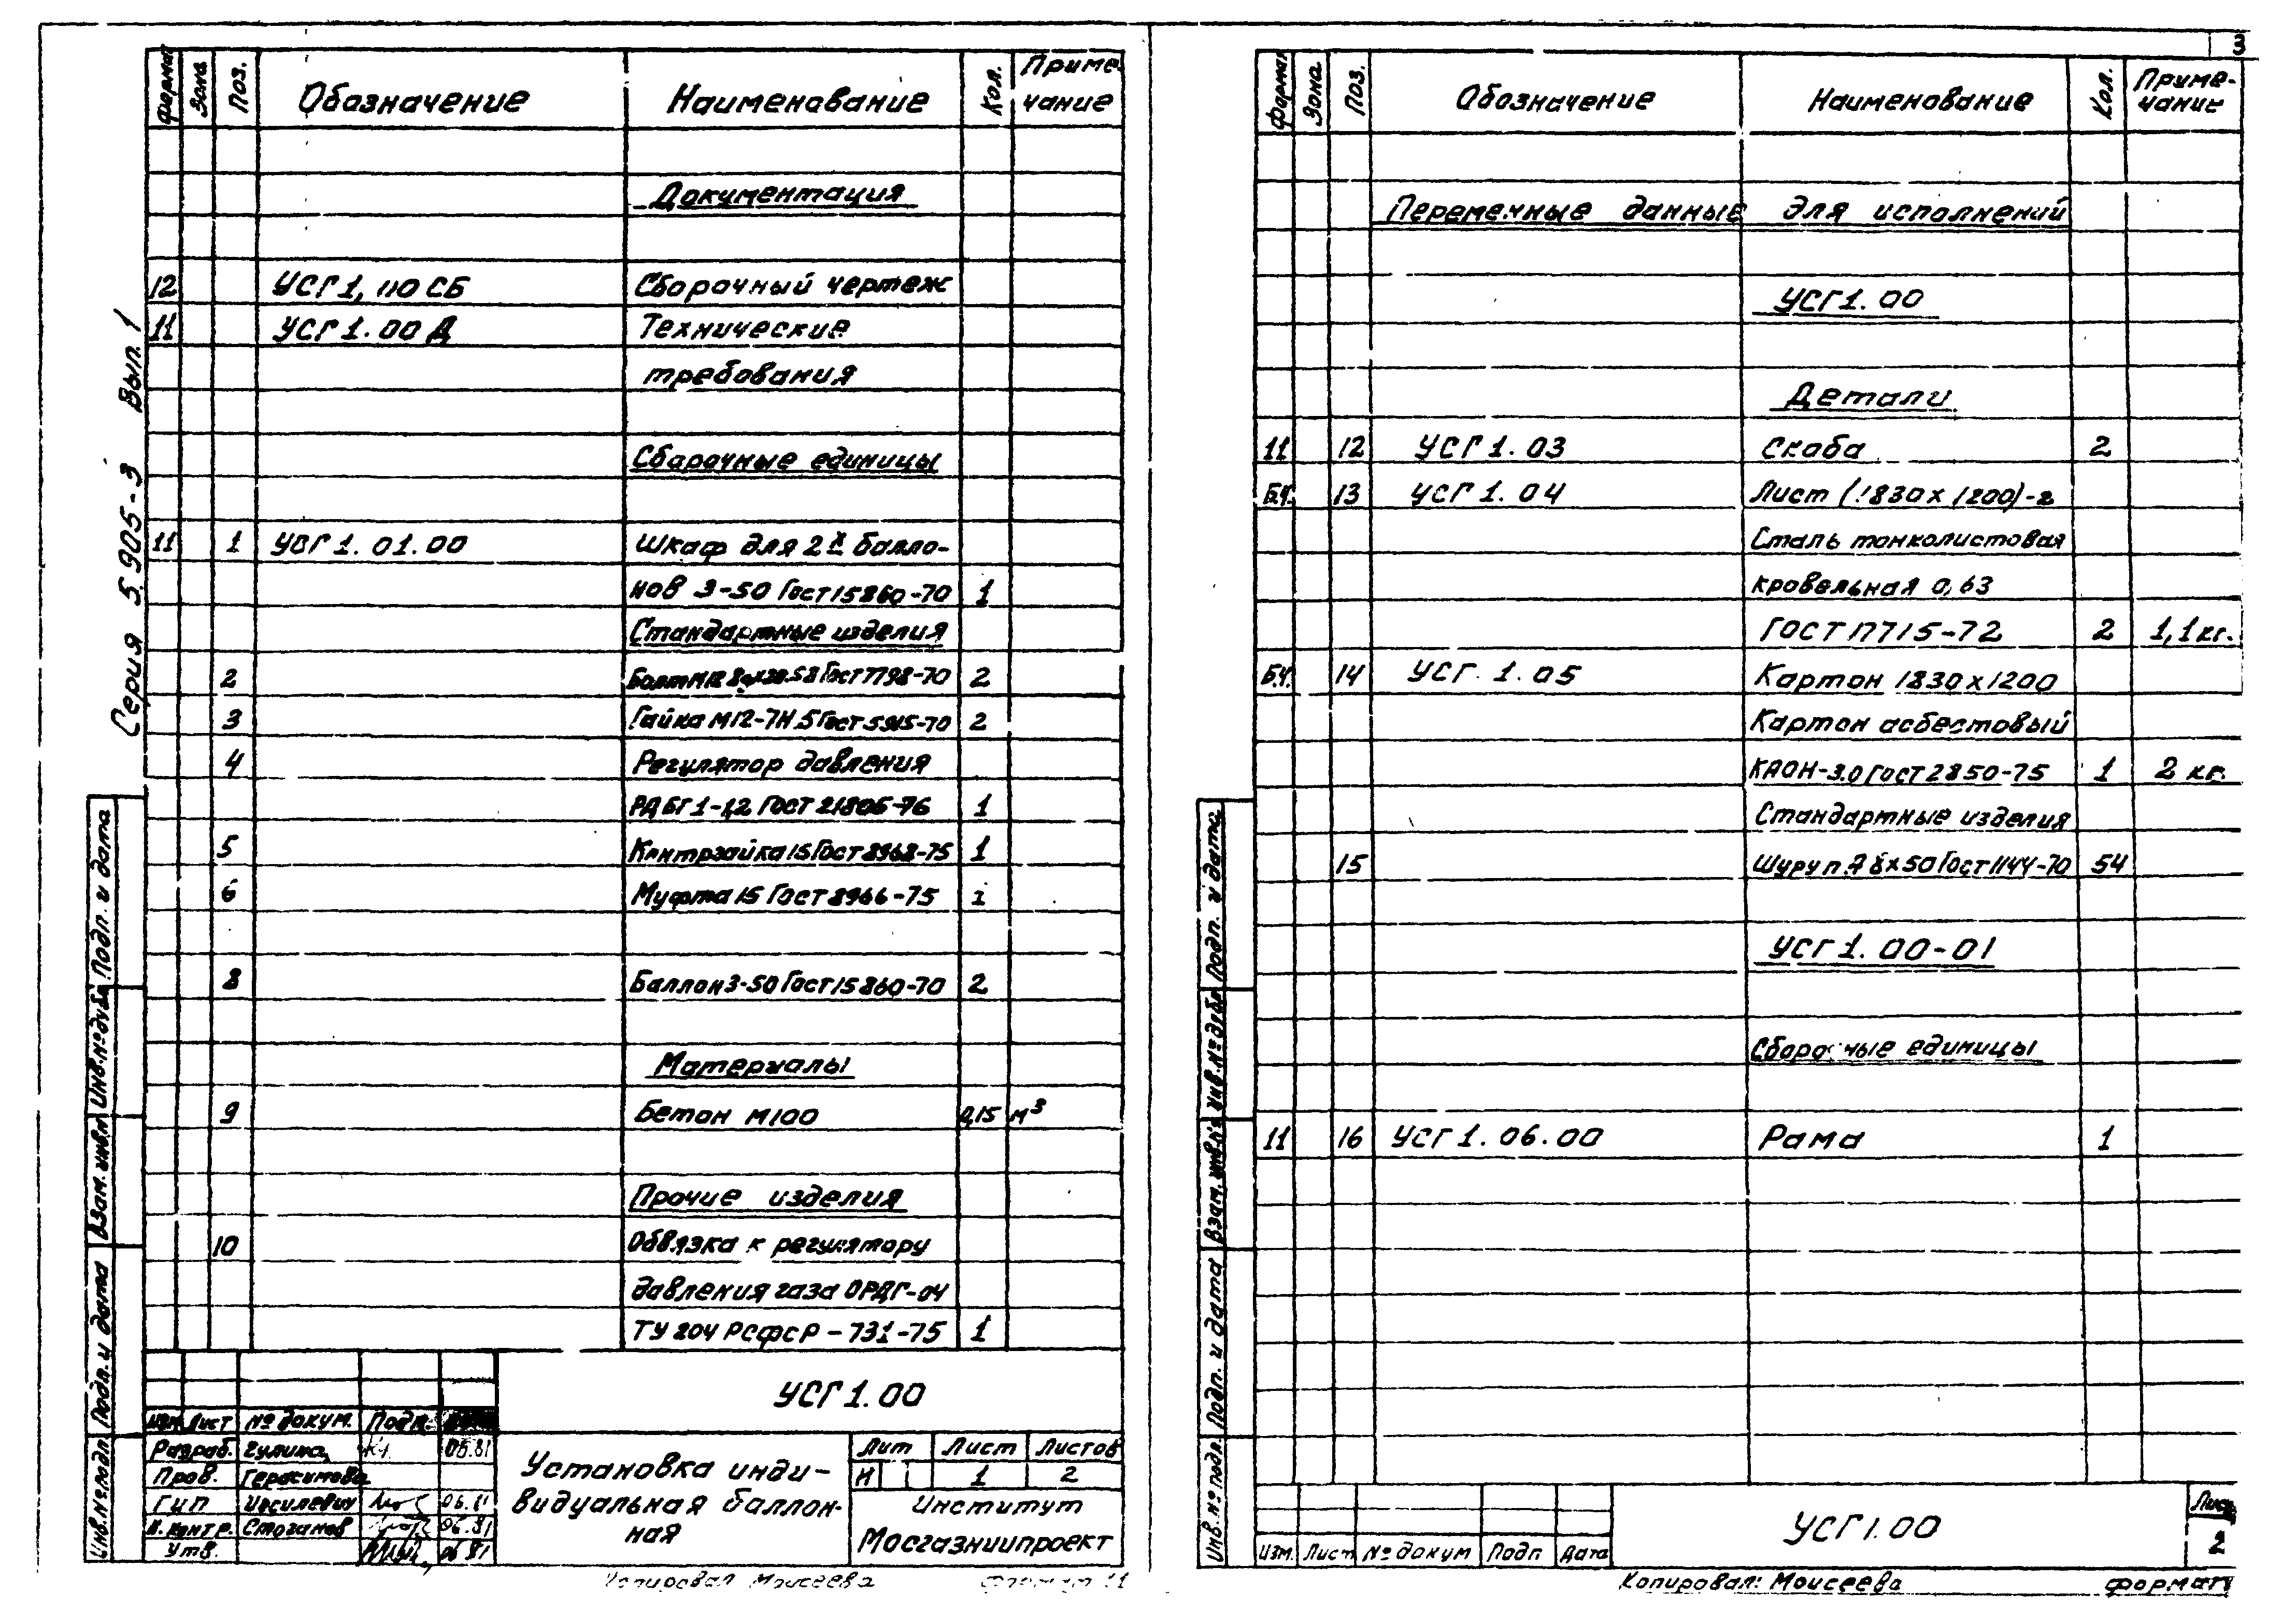 3
Серия 5.905-3 Вып. 1
Формат Зона Поз. Обозначение Наименование Кол. Приме-
чание
Документация
12 УСГ1, 110 СБ Сборочный чертеж
11 УСГ1.00 Д Технические
требования
Сборочные единицы
11 1 УСГ1.01.00 Шкаф для 2х балло-
нов 3-50 Гост 15860-70 1
Стандартные изделия
2 Гост 7798-70 2
3 Гайка М12-7Н.5 Гост 5915-70 2
4 Регулятор давления
РДБГ1-1,2 ГОСТ 21805-76 1
5 Контргайка 15 Гост 8968-75 1
6 Муфта 15 Гост 8966-75 1
8 Баллон 3-50 Гост 15860-70 2
Материалы
9 Бетон М100 0,15 м³
Прочие изделия
10 Обвязка к регулятору
давления газа ОРДГ-04
ТУ 204 РСФСР-731-75 1
УСГ1.00
Изм Лист № докум. Подп.
Разраб. Гулина 06.81
Пров. Герасимова
ГИП 06.81
Н. контр. Стоганов 06.81
Утв. 06 81
Установка инди-
видуальная баллон-
ная
Лит Лист Листов
И 1 2
Институт
Мосгазниипроект
Копировал Моисеева Формат 11
Инв.№ подл. Подп. и дата Взам. инв.№ Инв.№ дубл. Подп. и дата
Формат Зона Поз. Обозначение Наименование Кол. Приме-
чание
Переменные данные для исполнений
УСГ1.00
Детали
11 12 УСГ1.03 Скоба 2
Б.Ч. 13 УСГ1.04 Лист (1830х1200)-2
Сталь тонколистовая
кровельная 0,63
ГОСТ 17715-72 2 1,1 кг.
Б.Ч. 14 УСГ.1.05 Картон 1830х1200
Картон асбестовый
КАОН-3.0 Гост 2850-75 1 2 кг.
Стандартные изделия
15 Шуруп Гост 1144-70 54
УСГ1.00-01
Сборочные единицы
11 16 УСГ1.06.00 Рама 1
УСГ1.00
Лист
2
Изм. Лист № докум Подп Дата
Копировал: Моисеева формат 11
Инв.№ подл. Подп. и дата Взам. инв.№ Инв.№ дубл. Подп. и дата